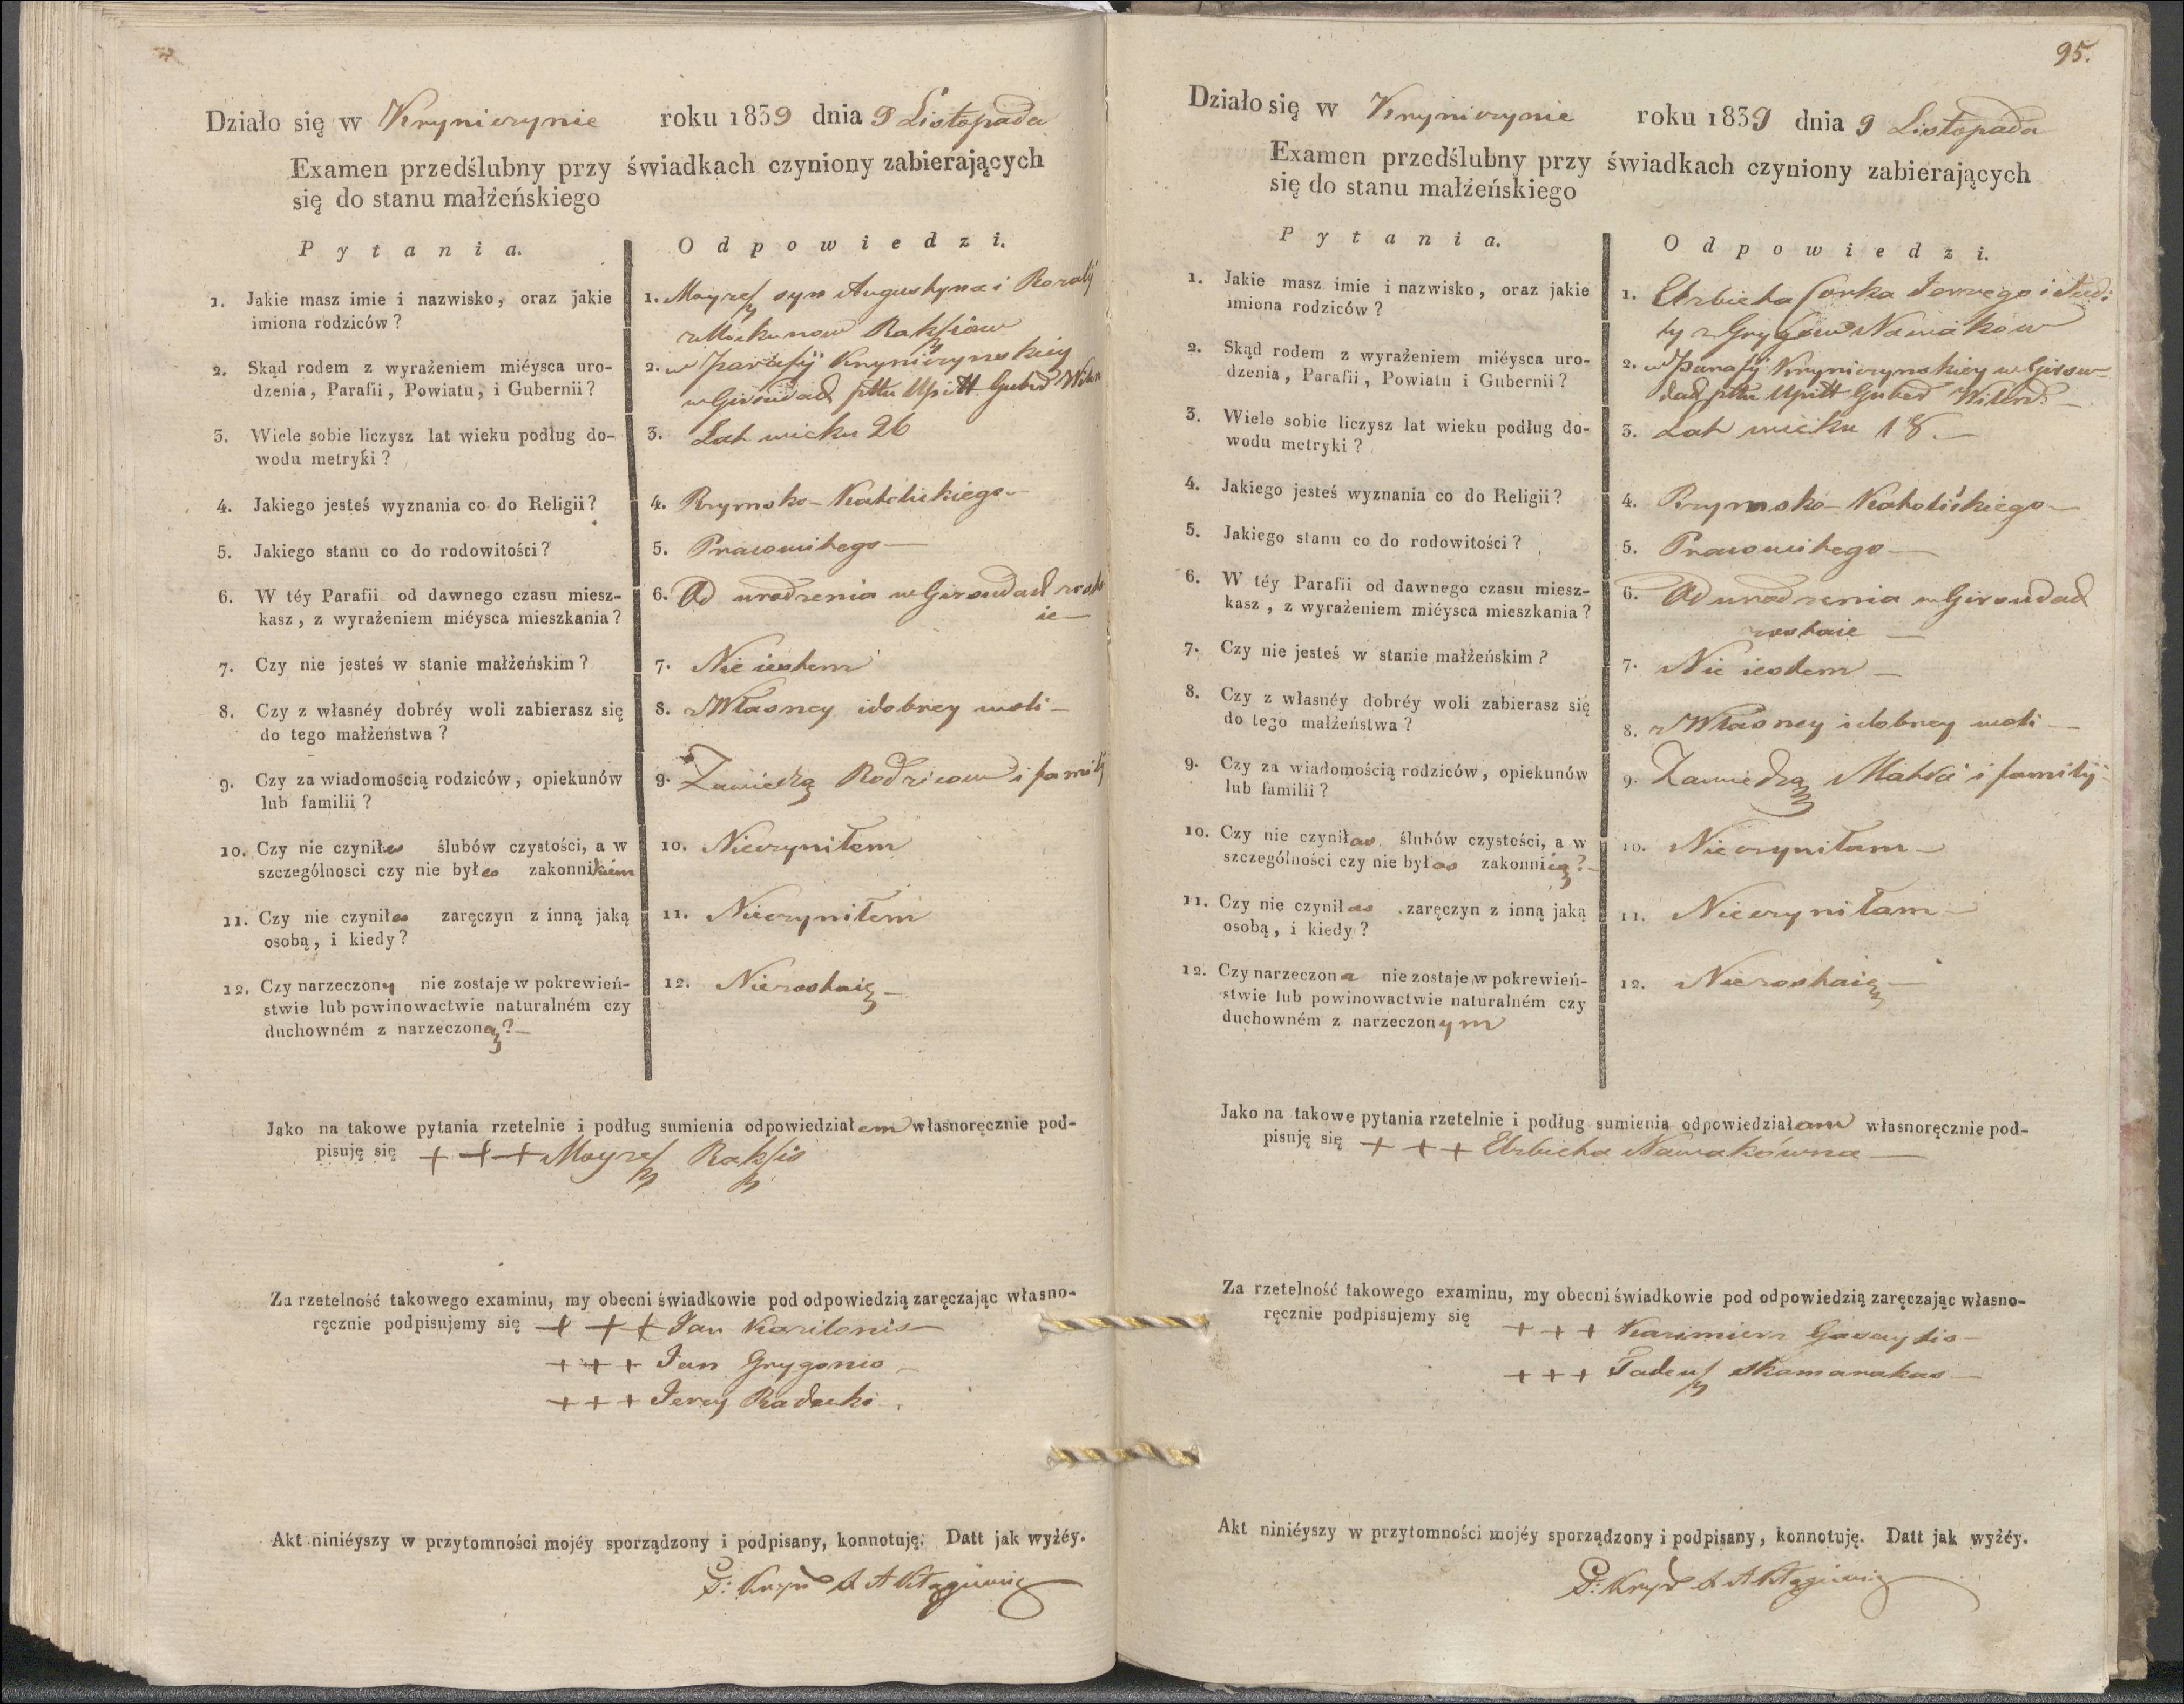 Działo się w Kryniczynie roku 1839 dnia 9 Listopada
Examen przedślubny przy świadkach czyniony zabierających
się do stanu małżeńskiego
Pytania. Odpowiedzi.
1. Jakie masz imie i nazwisko, oraz jakie
imiona rodziców?
1. Moyżesz syn Augustyna i Rozalij
z Mickunow Rakszow
2. Skąd rodem z wyrażeniem miéysca uro-
dzenia, Parafii, Powiatu, i Gubernii?
2. w Parafij Kryniczynskiey
w Girsudach pttu Upitt Gubern Wilen
3. Wiele sobie liczysz lat wieku podług do-
wodu metryki?
3. Lat wieku 26
4. Jakiego jesteś wyznania co do Religii?
4. Rzymsko-Katolickiego
5. Jakiego stanu co do rodowitości?
5. Pracowitego
6. W téy Parafii od dawnego czasu miesz-
kasz, z wyrażeniem miéysca mieszkania?
6. Od urodzenia w Girsudach zosta
ie
7. Czy nie jesteś w stanie małżeńskim?
7. Nie iestem
8. Czy z własnéy dobréy woli zabierasz się
do tego małżeństwa?
8. z Własney i dobrey woli
9. Czy za wiadomością rodziców, opiekunów
lub familii?
9. Zawiedzą Rodzicow i familij
10. Czy nie czyniłes ślubów czystości, a w
szczególnosci czy nie byłes zakonnikiem
10. Nieczyniłem
11. Czy nie czyniłes zaręczyn z inną jaką
osobą, i kiedy?
11. Nieczyniłem
12. Czy narzeczony nie zostaje w pokrewień-
stwie lub powinowactwie naturalném czy
duchowném z narzeczoną?
12. Niezostaię
Jako na takowe pytania rzetelnie i podług sumienia odpowiedziałem własnoręcznie pod-
pisuję się + + + Moyżesz Rakszis
Za rzetelność takowego examinu, my obecni świadkowie pod odpowiedzią zaręczając własno-
ręcznie podpisujemy się + + + Jan Karilonis
+ + + Jan Grygonis
+ + + Jerzy Radecki
Akt niniéyszy w przytomności mojéy sporządzony i podpisany, konnotuję. Datt jak wyżéy.
95.
Działo się w Krynicynie roku 1839 dnia 9 Listopada
Examen przedślubny przy świadkach czyniony zabierających
się do stanu małżeńskiego
Pytania. Odpowiedzi.
1. Jakie masz imie i nazwisko, oraz jakie
imiona rodziców?
1. Elzbieta Corka Jerzego i Judi
ty z Grygow Nawakow
2. Skąd rodem z wyrażeniem miéysca uro-
dzenia, Parafii, Powiatu i Gubernii?
2. w Parafij Kryniczynskiey w Girsu-
dach pttu Upitt Gubern Wilens
3. Wiele sobie liczysz lat wieku podług do-
wodu metryki?
3. Lat wieku 18.
4. Jakiego jesteś wyznania co do Religii?
4. Rzymsko-Katolickiego
5. Jakiego stanu co do rodowitości?
5. Pracowitego
6. W téy Parafii od dawnego czasu miesz-
kasz, z wyrażeniem miéysca mieszkania?
6. Od urodzenia w Girsudach
zostaie
7. Czy nie jesteś w stanie małżeńskim?
7. Nie iestem
8. Czy z własnéy dobréy woli zabierasz się
do tego małżeństwa?
8. z Własney i dobrey woli
9. Czy za wiadomością rodziców, opiekunów
lub familii?
9. Zawiedzą Matki i familij
10. Czy nie czyniłas ślubów czystości, a w
szczególności czy nie byłas zakonnicą?
10. Nieczyniłam
11. Czy nie czyniłas zaręczyn z inną jaką
osobą, i kiedy?
11. Nieczyniłam
12. Czy narzeczona nie zostaje w pokrewień-
stwie lub powinowactwie naturalném czy
duchowném z narzeczonym
12. Niezostaię
Jako na takowe pytania rzetelnie i podług sumienia odpowiedziałam własnoręcznie pod-
pisuję się + + + Elzbieta Nawakówna
Za rzetelność takowego examinu, my obecni świadkowie pod odpowiedzią zaręczając własno-
ręcznie podpisujemy się + + + Kazimierz Gasaytis
+ + + Tadeusz Skamarakas
Akt niniéyszy w przytomności mojéy sporządzony i podpisany, konnotuję. Datt jak wyżéy.